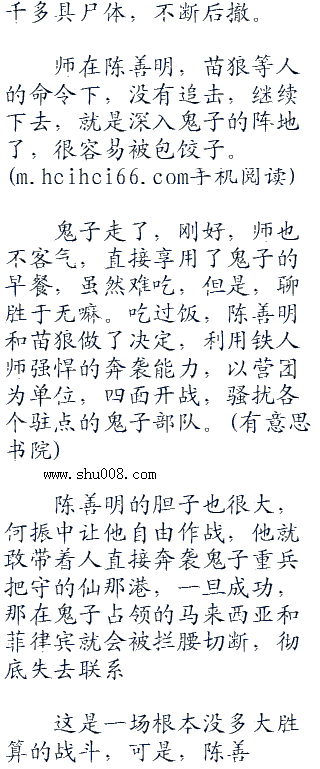 千多具尸体，不断后撤。
师在陈善明，苗狼等人
的命令下，没有追击，继续
下去，就是深入鬼子的阵地
了，很容易被包饺子。
(m.hcihci66.com手机阅读)
鬼子走了，刚好，师也
不客气，直接享用了鬼子的
早餐，虽然难吃，但是，聊
胜于无嘛。吃过饭，陈善明
和苗狼做了决定，利用铁人
师强悍的奔袭能力，以营团
为单位，四面开战，骚扰各
个驻点的鬼子部队。(有意思
书院)
www.shu008.com
陈善明的胆子也很大，
何振中让他自由作战，他就
敢带着人直接奔袭鬼子重兵
把守的仙那港，一旦成功，
那在鬼子占领的马来西亚和
菲律宾就会被拦腰切断，彻
底失去联系
这是一场根本没多大胜
算的战斗，可是，陈善